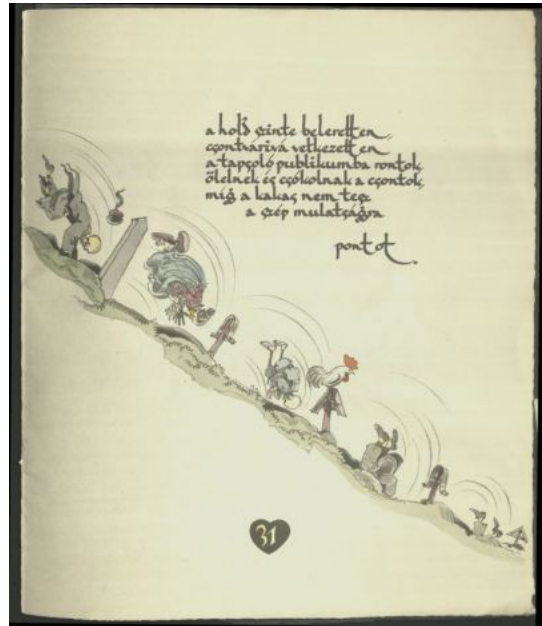 a hold szinte beleretten,
vetkezetten
a tapsoló publikumba rontok,
ölelnek és csókolnak a csontok,
míg a kakas nem tesz
a szép mulatságra
pontot.
31